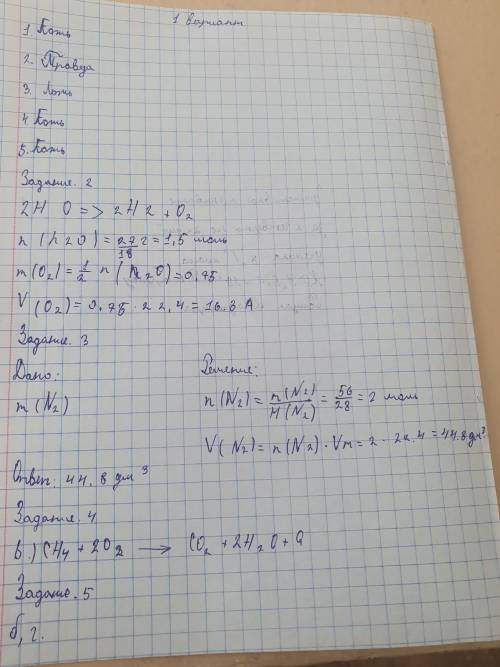 1 вариант
1. Ложь
2. Правда
3. Ложь
4. Ложь
5. Ложь
Задание. 2
2H O => 2H2 + O2
n (h2O) = 27г/18 = 1,5 моль
m(O2) = 1/2 n (H2O) = 0,75
V (O2) = 0.75 · 22,4 = 16.8 л
Задание. 3
Дано:
Решение:
m (N2)
n (N2) = m(N2)/M(N2) = 56/28 = 2 моль
V(N2) = n(N2) · Vm = 2 · 22.4 = 44.8 дм³
Ответ: 44,8 дм³
Задание. 4
в.) CH4 + 2O2 → CO2 + 2H2O + Q
Задание. 5
б, г.